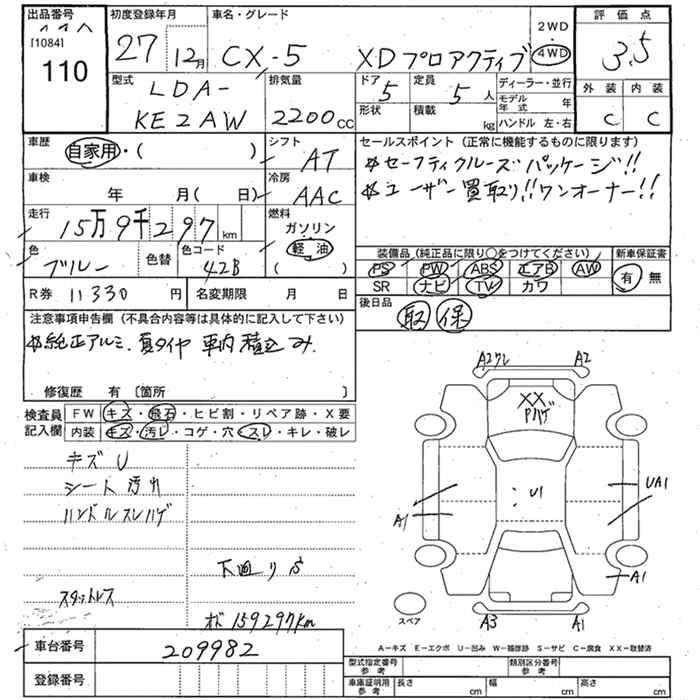 出品番号 初度登録年月 車名・グレード 2WD 評価点
[1084] 27 12月 CX-5 XDプロアクティブ 4WD 3.5
110
型式 排気量 ドア 定員 ディーラー・並行 外装 内装
LDA- 5 5人 モデル年式 年
KE2AW 2200cc 形状 積載 kg ハンドル 左・右 C C
車歴 自家用・( ) シフト AT
セールスポイント (正常に機能するものに限ります)
*セーフティクルーズパッケージ!!
車検 年 月( 日) 冷房 AAC
*ユーザー買取り!!ワンオーナー!!
走行 15万9千297km 燃料 ガソリン
軽油
色 ブルー 色替 色コード 42B ( )
装備品 (純正品に限り○をつけてください) 新車保証書
PS PW ABS エアB AW 有 無
SR ナビ TV カワ
R券 11330円 名変期限 月 日
後日品 取 保
注意事項申告欄 (不具合内容等は具体的に記入して下さい)
*純正アルミ、夏タイヤ 車内積込み.
修復歴 有 〔箇所 〕
検査員記入欄 FW キズ・飛石・ヒビ割・リペア跡・X要
内装 キズ・汚レ・コゲ・穴・スレ・キレ・破レ
キズU
シート汚れ
ハンドルスレハゲ
下廻りS
スタットレス
オド159297Km
A2ワレ A2
XX
Pハゲ
U1
UA1
A1
A1
A3 A1
スペア
A−キズ E−エクボ U−凹み W−補修跡 S−サビ C−腐食 XX−取替済
車台番号 209982
登録番号
型式指定番号 参考 類別区分番号 参考
車庫証明用 参考 長さ cm 幅 cm 高さ cm